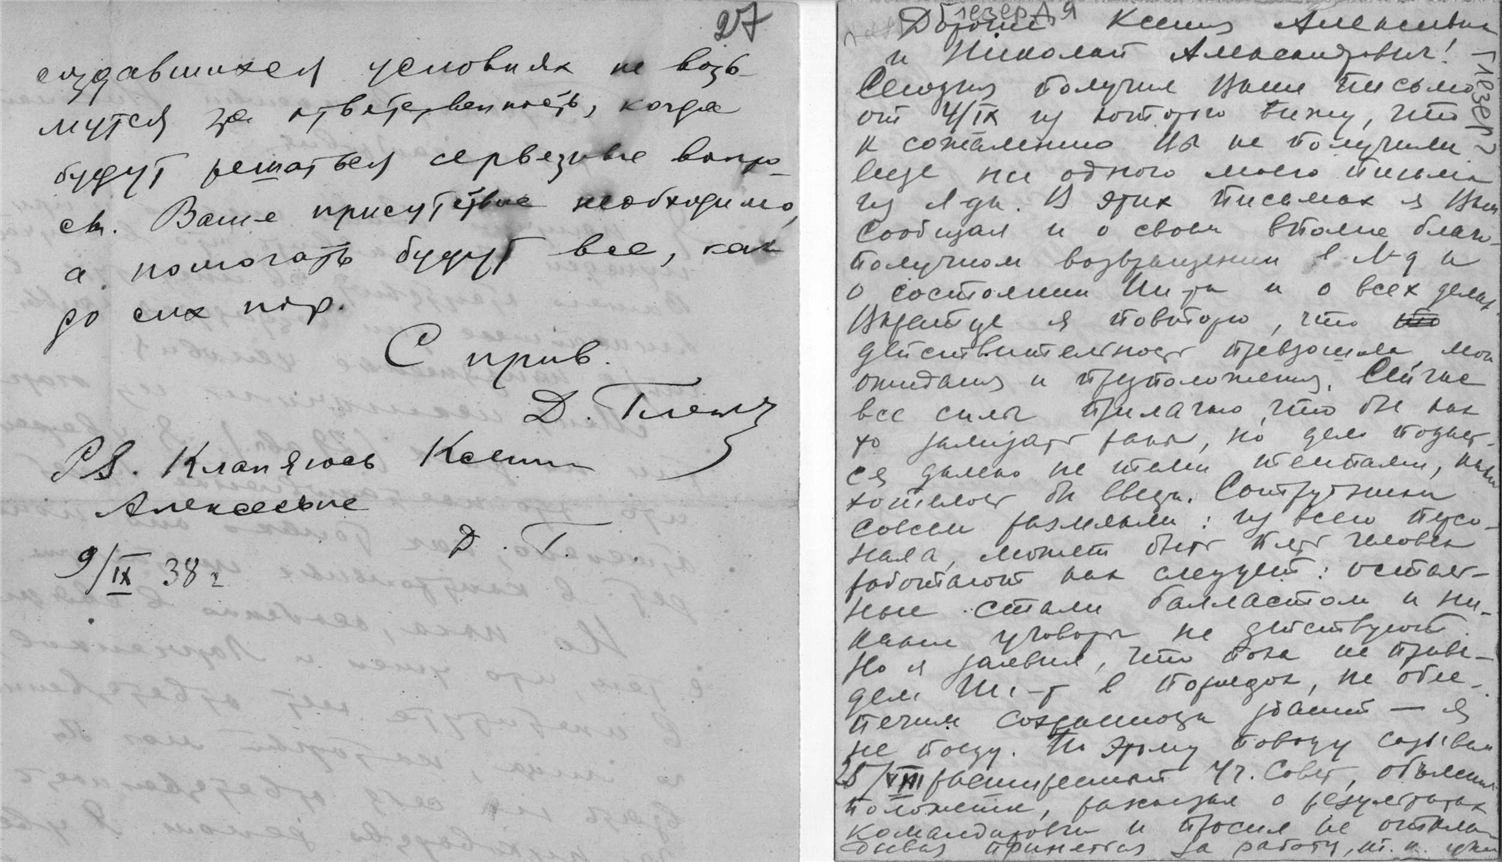 27
создавшихся условиях не возь-
мутся за ответственность, когда
будут решаться серьезные вопро-
сы. Ваше присутствие необходимо,
а помогать будут все, как
до сих пор.
С прив.
Д. Глезер
P.S. Кланяюсь Ксении
Алексеевне
Д. Г.
9/IX 38 г
Глезер Д Я
Глезер?
Дорогие Ксения Алексеевна
и Николай Александрович!
Сегодня получил Ваше письмо
от 4/IX из которого вижу, что
к сожалению Вы не получили
еще ни одного моего письма
из Л-да. В этих письмах я Вам
сообщал и о своем вполне благо-
получном возвращении в Л-д и
о состоянии Ин-та и о всех делах.
Вкратце я повторю, что
действительность превзошла мои
ожидания и предположения. Сейчас
все силы прилагаю, что бы как
то зализать раны, но дело подвигает-
ся далеко не теми темпами, как
хотелось бы. Сотрудники
совсем размякли: из всего персо-
нала, может быть пять человек
работают как следует: осталь-
ные стали балластом и ни-
какие уговоры не действуют.
Но я заявил, что пока не приве-
дем Ин-т в порядок, не обес-
печим сохранность зданий — я
не поеду. По этому поводу созывал
25/VIII расширенный Уч. Совет, объяснил
положение, рассказал о результатах
командировки и просил не
принятся за работу, т. к.